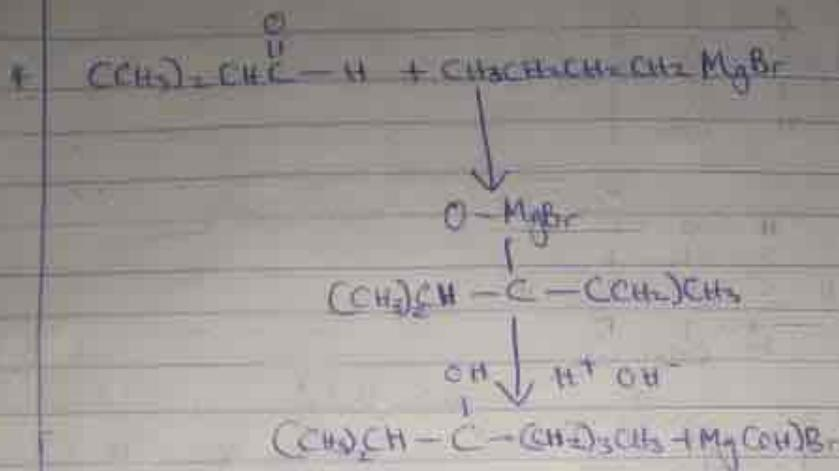 O
||
(CH3)2CHC — H + CH3CH2CH2CH2 MgBr
O — MgBr
(CH3)2CH — C — (CH2)CH3
OH H+ OH-
(CH3)2CH — C — (CH2)3CH3 + Mg(OH)B